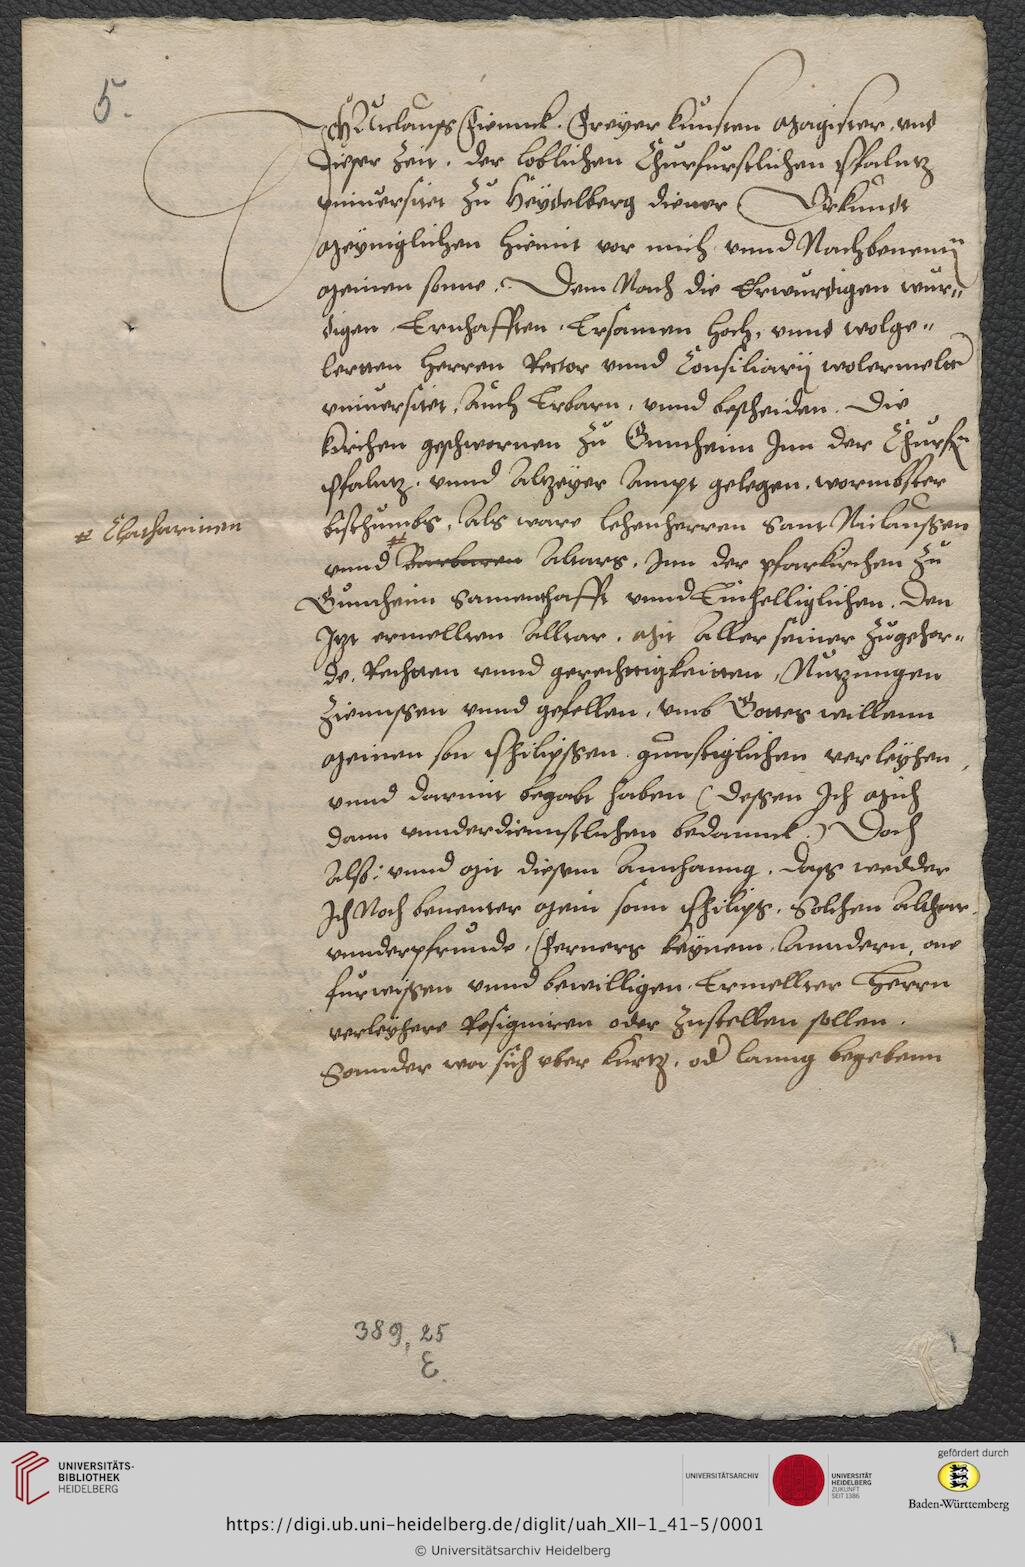 5.
Ich Niclauss Cienck. Freyer kunsten Magister, vnd
dieser Zeit. der loblichen Churfurstlichen Pfalntz
vniuersitet zu Heydelberg diener (Bekundt
Meyniglichen hiemit vor mich vnnd Nachbenenten
Meinen sonne. Dem Nach die Erwurdigen wur-
digen Ernhafften Ersamen hoch, vnnd wolge-
lerten herren Rector vnnd Consiliarij wolermelter
vniuersitet, Auch Erbarn, vnnd bescheiden. Die
kirchen geschwornen zu Guncheim Inn der Churf.
Pfalntz. vnnd Altzeyer Ampt gelegen. wormbster
bisthumbs, Als ware lehenherren Sant Niclaussen
# Catharinen
vnnd # Barbaren Altars, Inn der pfarkirchen zu
Guncheim Samenthafft vnnd Einhelliglichen. Den
Itzt ermellten Alltar. Mit Aller seiner Zugehor-
de, Rechten vnnd gerechtigkeitten, Nutzungen
Ziennssen vnnd gefellen, vmb Gottes willenn
Meinen son Philipssen gunstiglichen verleyhen,
vnnd darmit begabt haben (dessen Ich Mich
dann vnnderdiennstlichen bedannck.) Doch
Also: vnnd Mit diesem Annhanng. Dass wedder
Ich Noch benenter Mein sonn Philips. Solchen Althar
vnnderpfrunde, Ferners keynem Anndern, one
furwissen vnnd bewilligen Ermellter Herrn
verleyhere Resigniren oder Zustellen sollen.
Sonnder wa sich vber kurtz, od lanng begebenn
389, 25
E.
UNIVERSITÄTS-
BIBLIOTHEK
HEIDELBERG
UNIVERSITÄTSARCHIV
UNIVERSITÄT
HEIDELBERG
ZUKUNFT
SEIT 1386
gefördert durch
Baden-Württemberg
https://digi.ub.uni-heidelberg.de/diglit/uah_XII-1_41-5/0001
© Universitätsarchiv Heidelberg